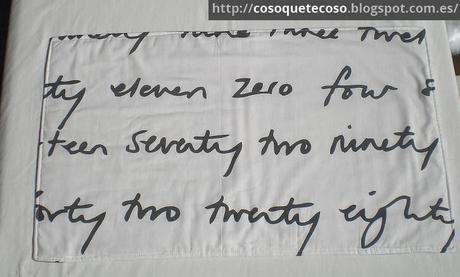 http://cosoquetecoso.blogspot.com.es/
ninety nine three twel
ty eleven zero four
teen seventy two ninety
orty two twenty eighty